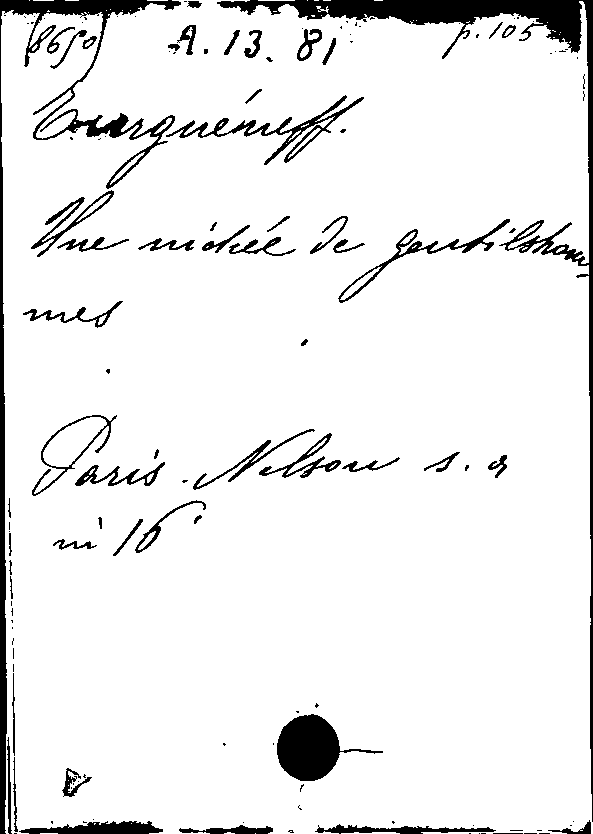 (8650) A. 13. 81 p. 105
Tourguéneff.
Une nichée de gentilshom-
mes
Paris. Nelson s. a
in 16°